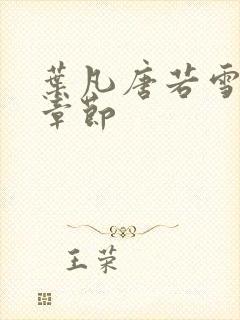 葉凡唐若雪
章節
王荣